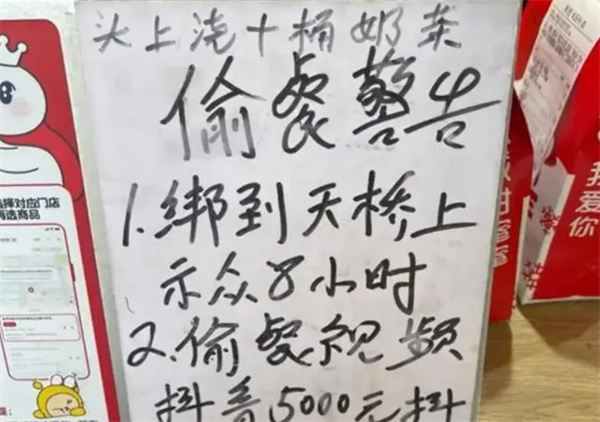 头上浇十桶奶茶
偷餐警告
1.绑到天桥上
示众8小时
2.偷餐视频
抖音5000元抖
选择对应门店
再选商品
我
爱
你